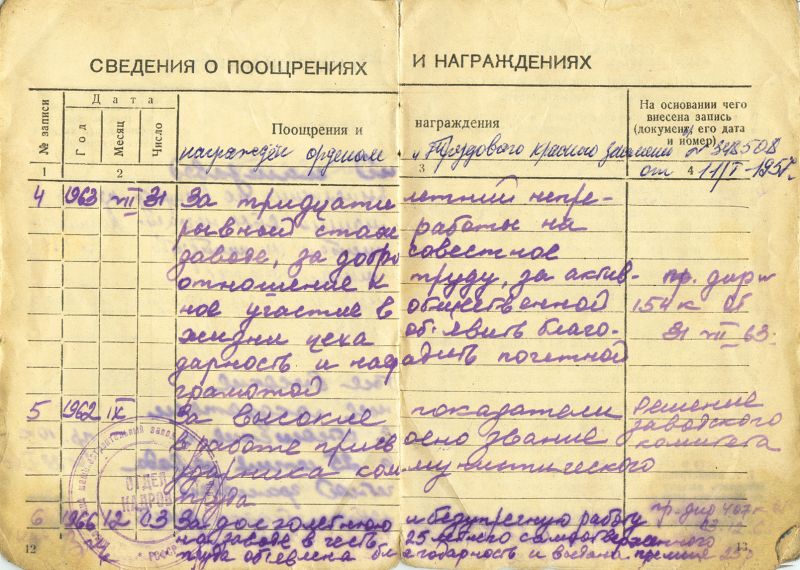 СВЕДЕНИЯ О ПООЩРЕНИЯХ И НАГРАЖДЕНИЯХ
№ записи
Дата
Год
Месяц
Число
Поощрения и награждения
На основании чего внесена запись (документ, его дата и номер)
награждён орденом „Трудового красного знамени" № 348508
от 11/I-1957г.
1 2 3 4
4 1963 VII 31 За тридцати летний непре-
рывной стаж работы на
заводе, за добро совестное
отношение к труду, за актив- пр. дир
ное участие в общественной 154 к от
жизни цеха объявить благо- 31 VII 63г
дарность и наградить почетной
грамотой
5 1962 IX За высокие показатели Решение
в работе присвоено звание заводского
ударника коммунистического комитета
труда
6 1966 12 03 За долголетнюю и безупречную работу пр. дир 407к
на заводе в честь 25 летнего
труда объявлена благодарность и выдана премия
ОТДЕЛ
КАДРОВ
РСФСР
12
13